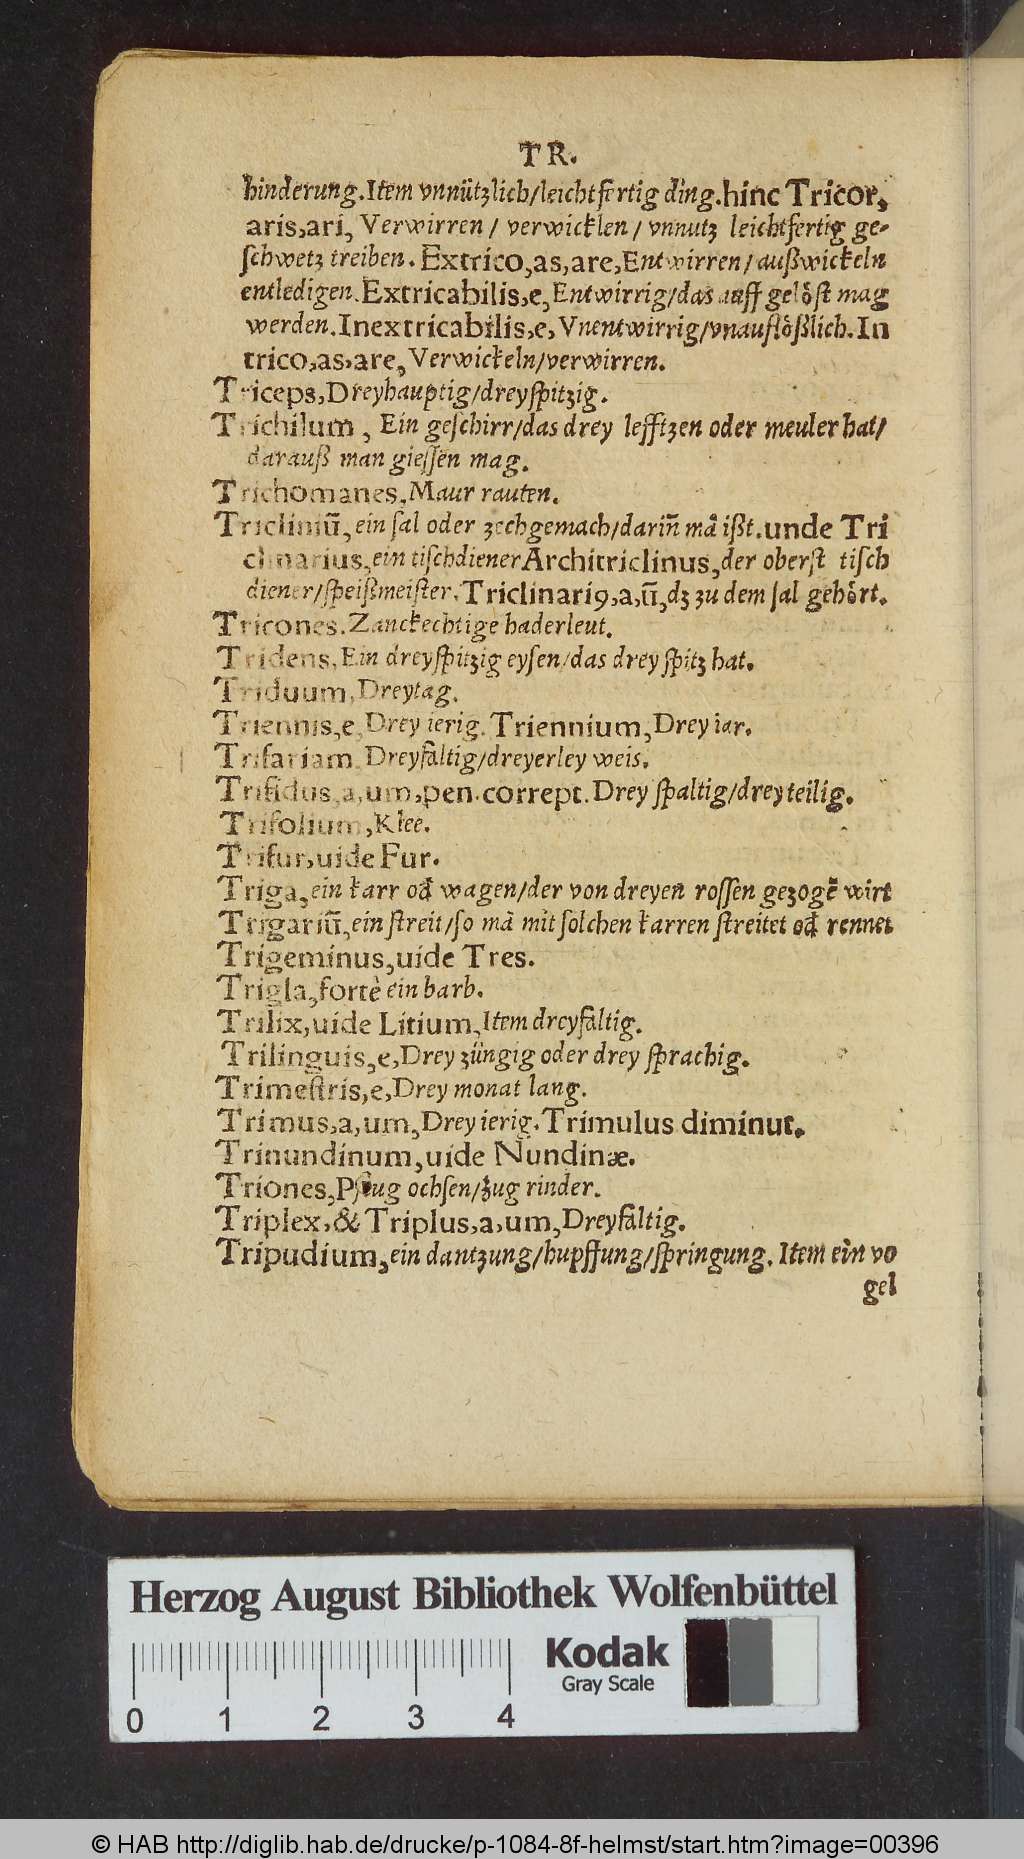 TR.
hinderung. Item vnnützlich/leichtfertig ding. hinc Tricor,
aris, ari, Verwirren / verwicklen / vnnutz leichtfertig ge-
schwetz treiben. Extrico, as, are, Entwirren/außwickeln
entledigen. Extricabilis, e, Entwirrig/das auff gelöst mag
werden. Inextricabilis, e, Vnentwirrig/vnauflößlich. In
trico, as, are, Verwickeln/verwirren.
Triceps, Dreyhauptig/dreyspitzig.
Trichilum, Ein geschirr/das drey lefftzen oder meuler hat/
darauß man giessen mag.
Trichomanes, Maur rauten.
Tricliniū, ein sal oder zechgemach/darin̄ mā ißt. unde Tri
clinarius, ein tischdiener Architriclinus, der oberst tisch
diener/speißmeister. Triclinariꝰ, a, ū, dz zu dem sal gehört.
Tricones. Zanckechtige haderleut.
Tridens, Ein dreyspitzig eysen/das drey spitz hat.
Triduum, Dreytag.
Triennis, e, Drey ierig. Triennium, Drey iar.
Trifariam, Dreyfältig/dreyerley weis.
Trifidus, a, um, pen. corrept. Drey spaltig/drey teilig.
Trifolium, Klee.
Trifur, uide Fur.
Triga, ein karr od̄ wagen/der von dreyen rossen gezogē wirt
Trigariū, ein streit/so mā mit solchen karren streitet od̄ rennet
Trigeminus, uide Tres.
Trigla, fortè ein barb.
Trilix, uide Litium, Item dreyfältig.
Trilinguis, e, Drey züngig oder drey sprachig.
Trimestris, e, Drey monat lang.
Trimus, a, um, Drey ierig. Trimulus diminut.
Trinundinum, uide Nundinæ.
Triones, Pflug ochsen/zug rinder.
Triplex, & Triplus, a, um, Dreyfältig.
Tripudium, ein dantzung/hupffung/springung. Item ein vo
gel
Herzog August Bibliothek Wolfenbüttel
Kodak
Gray Scale
0 1 2 3 4
© HAB http://diglib.hab.de/drucke/p-1084-8f-helmst/start.htm?image=00396